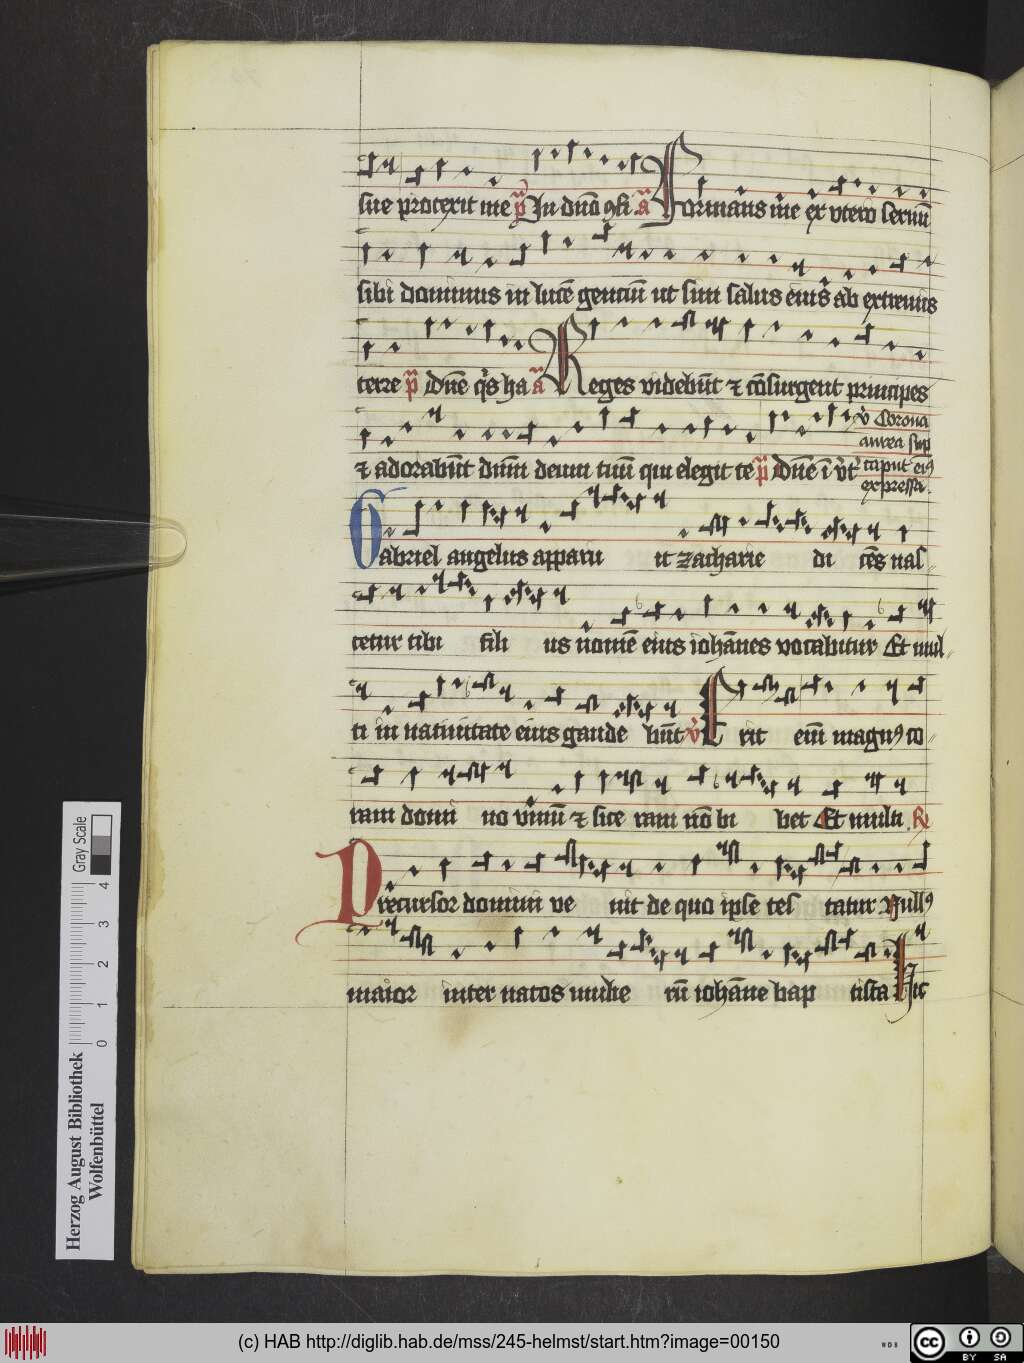 sue protexit me p̄ In dn̄o ꝯfi ā Formans me ex vtero seruū
sibi dominus in lucē genciū ut sim salus eius ab extremis
terre p̄ Dn̄e q̄s ha ā Reges videbūt ⁊ cōsurgent principes
⁊ adorabūt dn̄m deum tuū qui elegit te p̄ Dn̄e ī v̄t
v̄ Corona
aurea sup
caput eiꝰ
expressa.
Gabriel angelus apparu it zacharie di cēs nas-
cetur tibi fili us nomē eius iohānes vocabitur Et mul-
ti in natiuitate eius gaude būt v̄ Erit eim̄ magnꝰ co-
ram domi no vinū ⁊ sice ram nō bi bet Et multi R
Precursor domini ve nit de quo ipse tes tatur Nullꝰ
maior inter natos mulie rū iohāne bap tista Hic
Herzog August Bibliothek
Wolfenbüttel
Gray Scale
0 1 2 3 4
(c) HAB http://diglib.hab.de/mss/245-helmst/start.htm?image=00150
WDB
CC BY SA